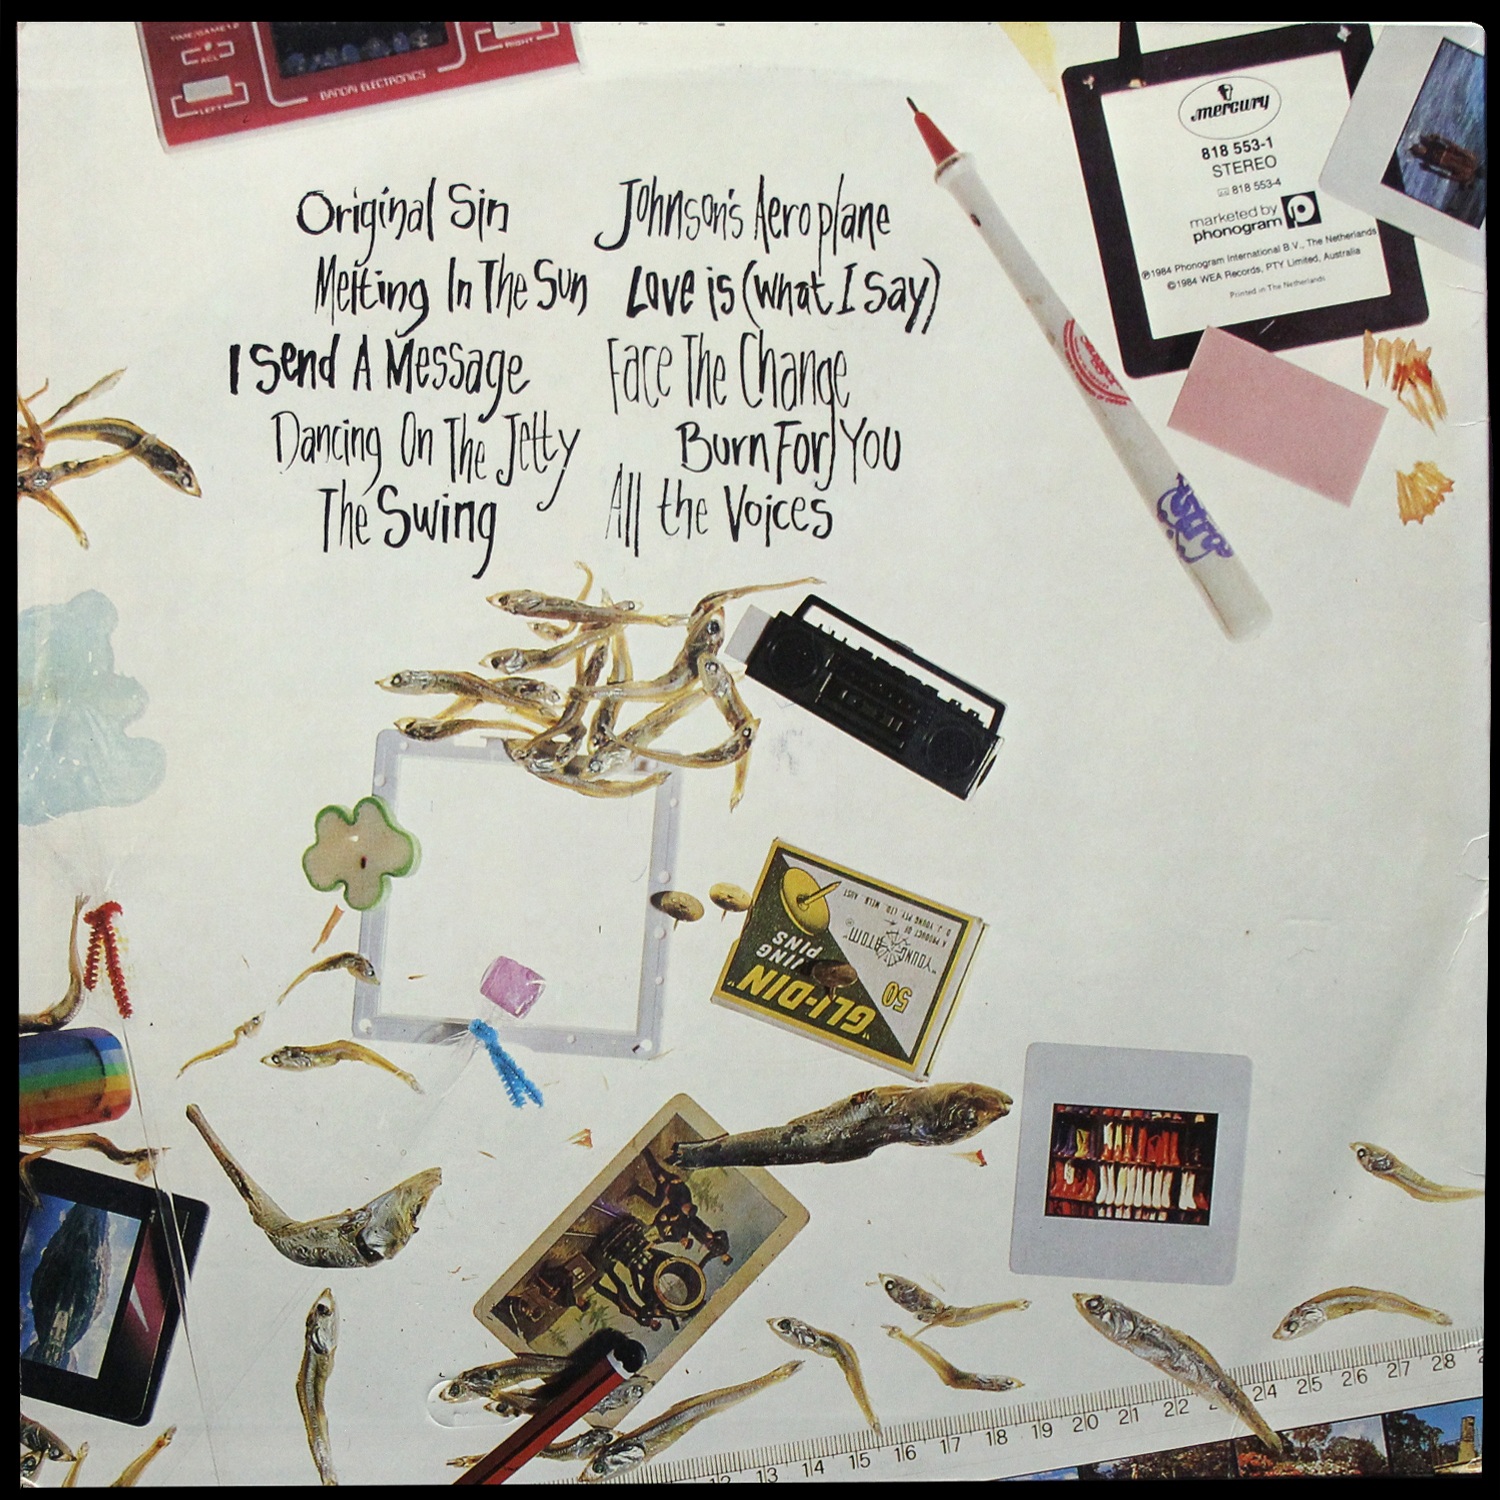 TIME/GAME1.2
ACL
LEFT
RIGHT
BANDAI ELECTRONICS
mercury
818 553-1
STEREO
818 553-4
marketed by
phonogram
℗1984 Phonogram International B.V., The Netherlands
©1984 WEA Records, PTY Limited, Australia
Printed in The Netherlands
Original Sin
Melting In The Sun
I Send A Message
Dancing On The Jetty
The Swing
Johnson's Aeroplane
Love is (what I Say)
Face The Change
Burn For You
All the Voices
"GLI-DIN"
PINS
50
"YOUNG ATOM"
A PRODUCT OF
D. J. YOUNG PTY. LTD. MELB. AUST
13 14 15 16 17 18 19 20 21 22 24 25 26 27 28